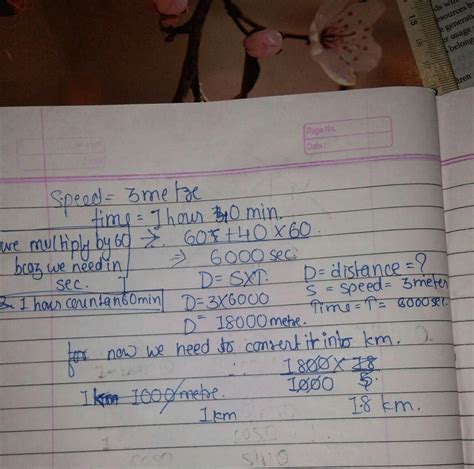 Page No.
Date:
Speed = 3 metre
time = 1 hour 40 min.
we multiply by 60 → 60 + 40 X 60
bcoz we need in
sec.
⇒ 6000 sec.
& 1 hour countan 60 min)
D = SXT.
D = 3X6000
D = 18000 metre.
D = distance = ?
S = speed = 3 meter
Time = T = 6000 sec.
now we need to convert it into km.
1km 1000 metre.
1km
1000
18 km.
15